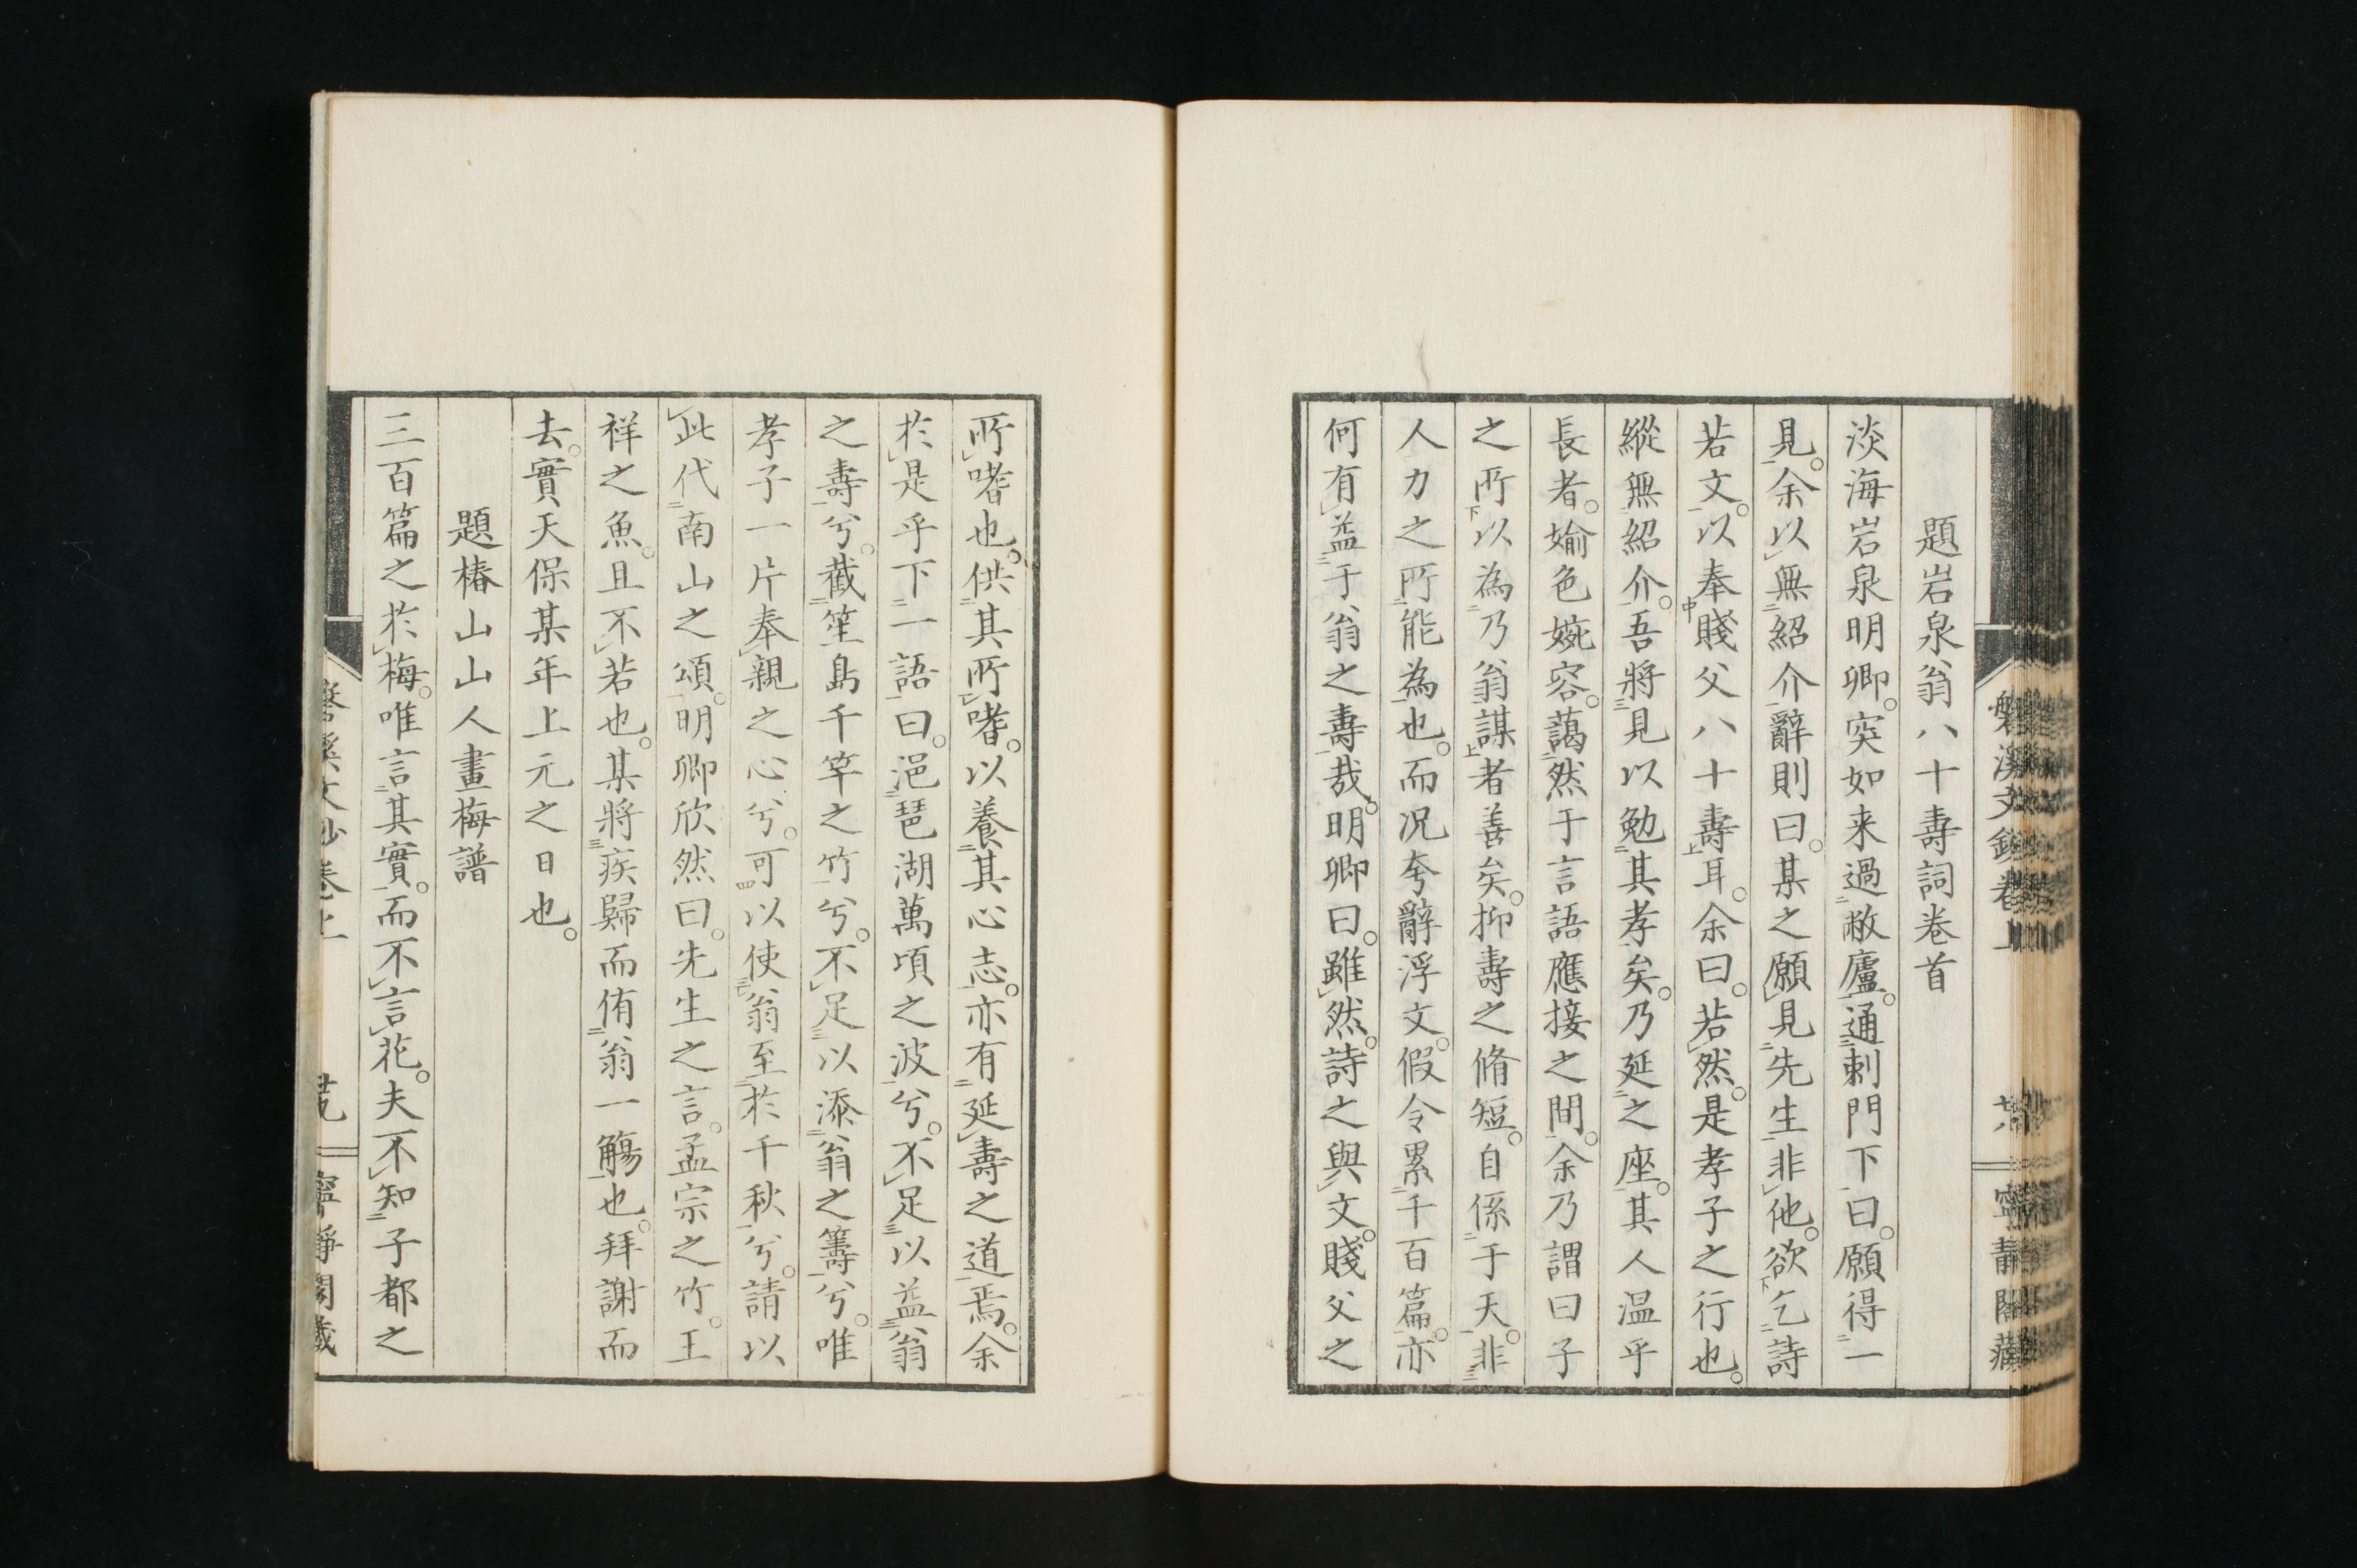 題岩泉翁八十壽詞卷首
淡海岩泉明卿。突如来過敝廬。通刺門下曰。願得一
見。余以無紹介辭則曰。某之願見先生非他。欲乞詩
若文。以奉賤父八十壽耳。余曰。若然。是孝子之行也。
縱無紹介。吾將見以勉其孝矣。乃延之座。其人温乎
長者。婾色婉容。藹然于言語應接之間。余乃謂曰子
之所以為乃翁謀者善矣。抑壽之脩短。自係于天。非
人力之所能為也。而况夸辭浮文。假令累千百篇。亦
何有益于翁之壽哉。明卿曰。雖然。詩之與文。賤父之
所嗜也。供其所嗜。以養其心志。亦有延壽之道焉。余
於是乎下一語曰。浥琶湖萬頃之波兮。不足以益翁
之壽兮。截笙島千竿之竹兮。不足以添翁之籌兮。唯
孝子一片奉親之心兮。可以使翁至於千秋兮。請以
此代南山之頌。明卿欣然曰。先生之言。孟宗之竹。王
祥之魚。且不若也。某將疾歸而侑翁一觴也。拜謝而
去。實天保某年上元之日也。
題椿山山人畫梅譜
三百篇之於梅。唯言其實。而不言花。夫不知子都之
磐溪文鈔卷上
寧靜閣藏